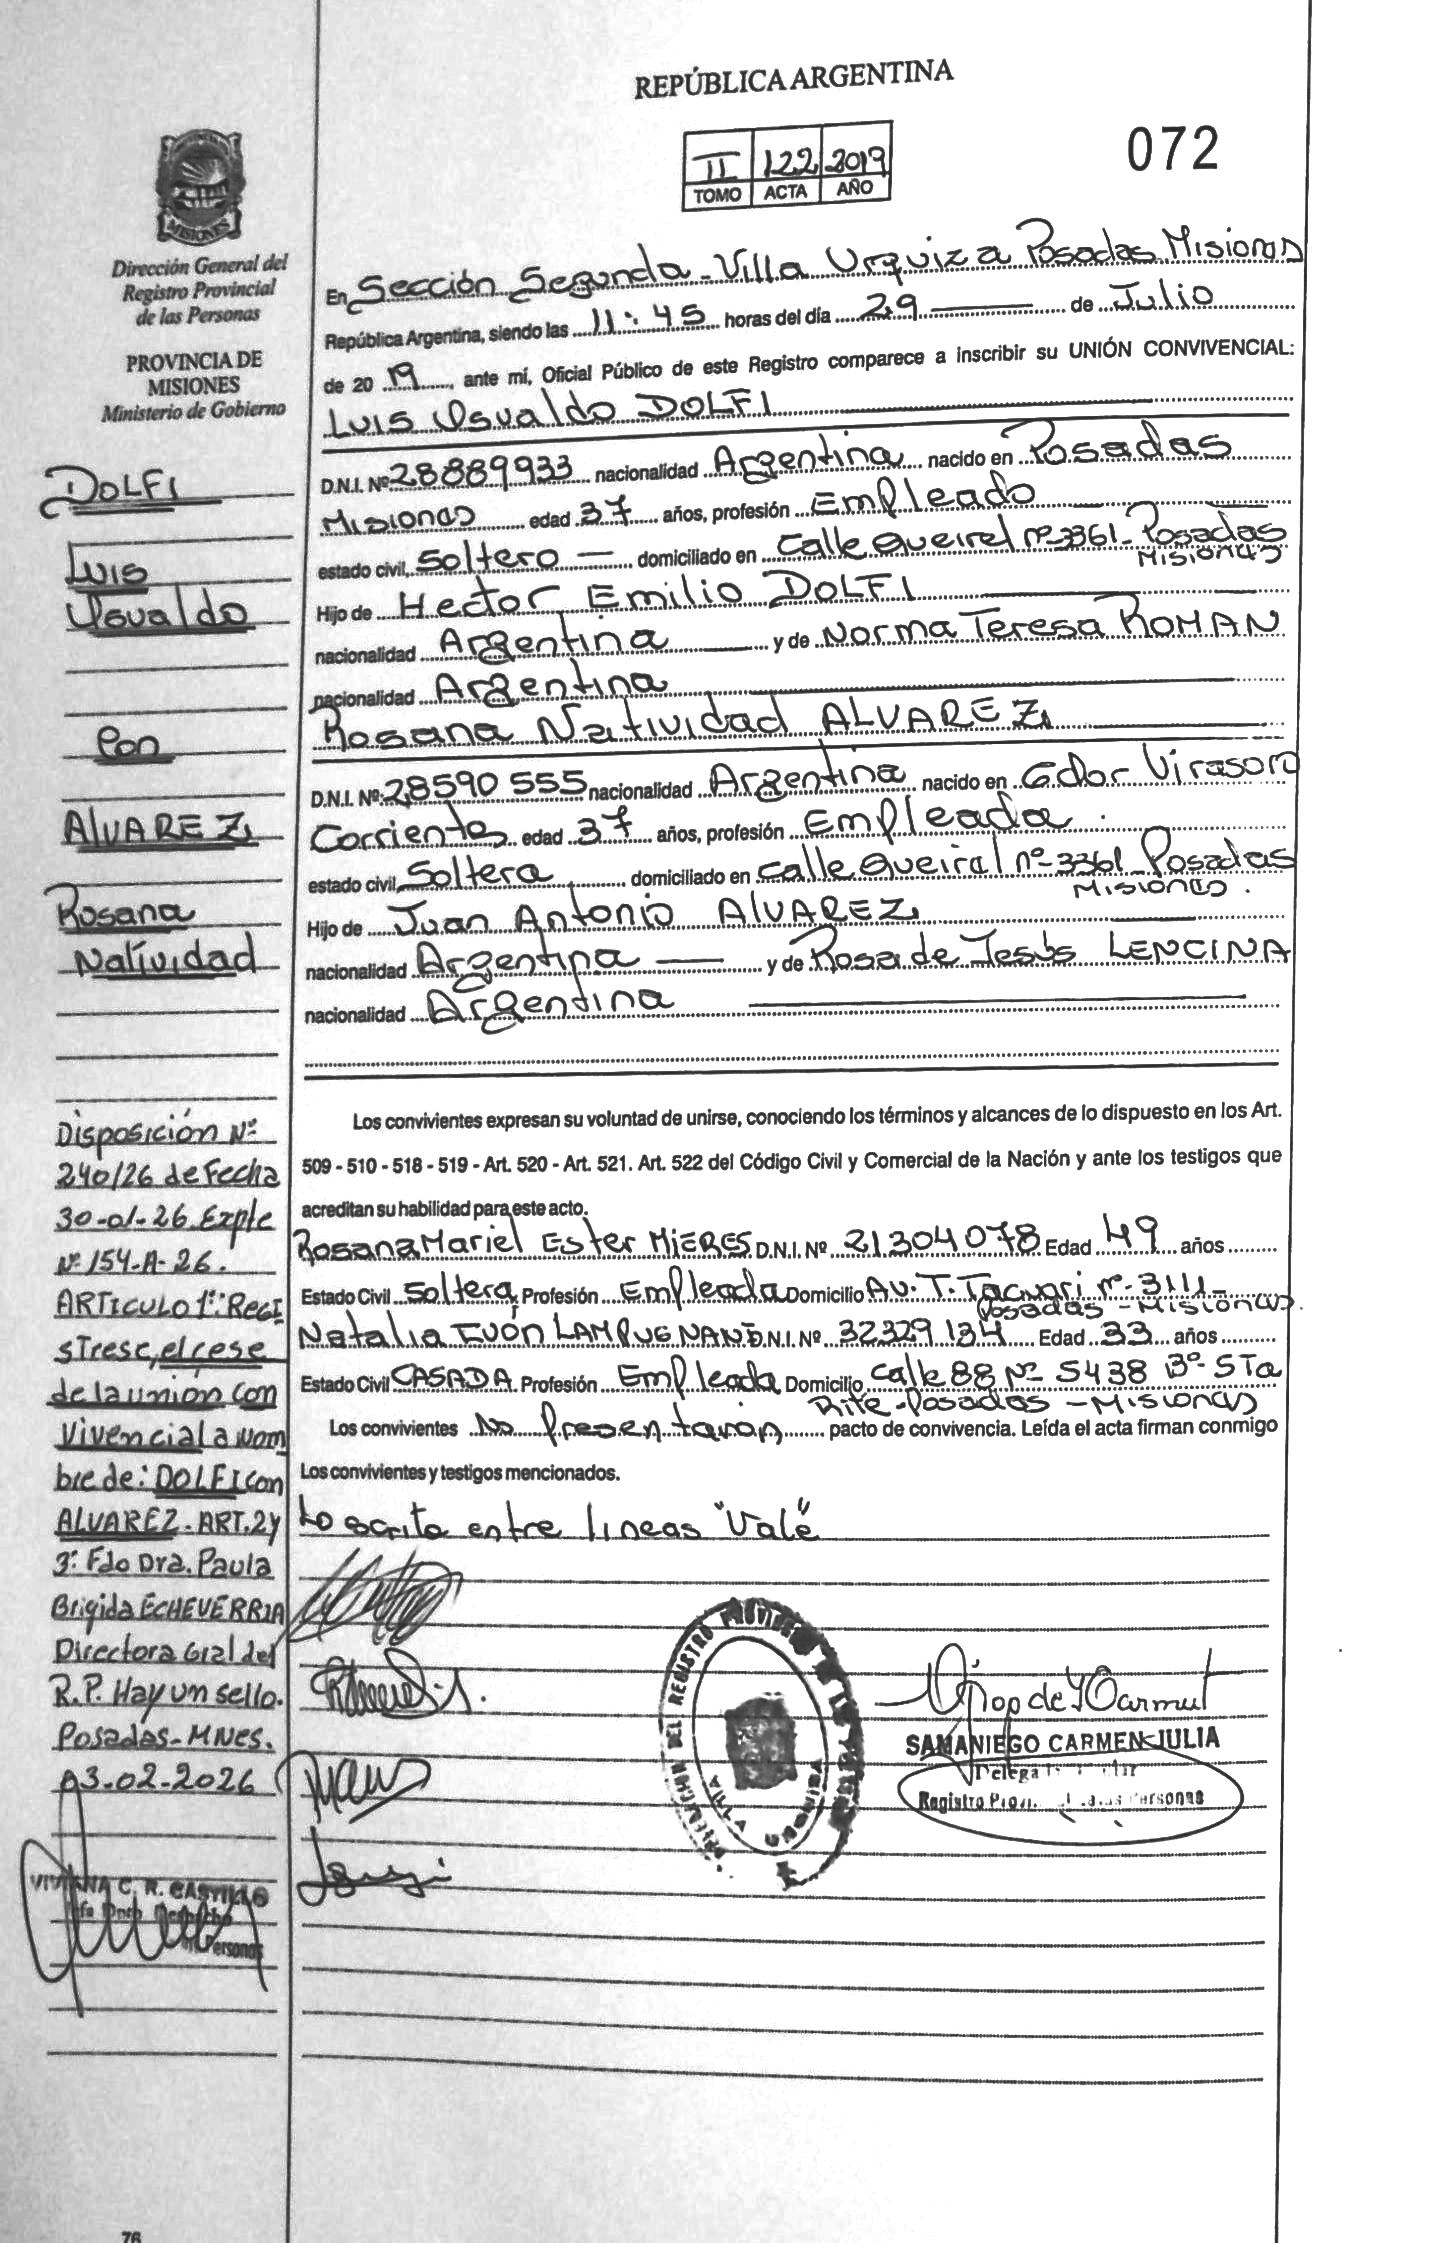 REPÚBLICA ARGENTINA
II 122 2019
TOMO ACTA AÑO
072
MISIONES
Dirección General del
Registro Provincial
de las Personas
PROVINCIA DE
MISIONES
Ministerio de Gobierno
DOLFI
Luis
Osvaldo
Con
ALVAREZ
Rosana
Natividad
Disposición Nº
240/26 de Fecha
30-01-26 Expte
Nº 154-A-26.
ARTICULO 1º: Regi
strese, el cese
de la unión con
vivencial a nom
bre de: DOLFI con
ALVAREZ. ART. 2 y
3º Fdo Dra. Paula
Brigida ECHEVERRIA
Directora Gral del
R.P. Hay un sello.
Posadas-Mnes.
03-02-2026
VIVIANA C. R. CASTILLO
Personas
En Sección Segunda - Villa Urquiza Posadas Misiones
República Argentina, siendo las 11:45 horas del día 29 de Julio
de 20 19, ante mí, Oficial Público de este Registro comparece a inscribir su UNIÓN CONVIVENCIAL:
Luis Osvaldo DOLFI
D.N.I. Nº 28889933 nacionalidad Argentina nacido en Posadas
Misiones edad 37 años, profesión Empleado
estado civil, Soltero domiciliado en Calle Queirel nº 3361 - Posadas
Misiones
Hijo de Hector Emilio DOLFI
nacionalidad Argentina y de Norma Teresa ROMAN
nacionalidad Argentina
Rosana Natividad ALVAREZ
D.N.I. Nº 28590555 nacionalidad Argentina nacido en Gdor Virasoro
Corrientes edad 37 años, profesión Empleada
estado civil, Soltera domiciliado en Calle Queiral nº 3361 Posadas
Misiones.
Hijo de Juan Antonio ALVAREZ
nacionalidad Argentina y de Rosa de Jesús LENCINA
nacionalidad Argentina
Los convivientes expresan su voluntad de unirse, conociendo los términos y alcances de lo dispuesto en los Art.
509 - 510 - 518 - 519 - Art. 520 - Art. 521. Art. 522 del Código Civil y Comercial de la Nación y ante los testigos que
acreditan su habilidad para este acto.
Rosana Mariel Ester MIERES D.N.I. Nº 21304078 Edad 49 años
Estado Civil Soltera Profesión Empleada Domicilio Av. T. Tacuari nº 3111 -
Posadas - Misiones.
Natalia Ivón LAMPUGNANI D.N.I. Nº 32329134 Edad 33 años
Estado Civil CASADA Profesión Empleada Domicilio Calle 88 Nº 5438 Bº Sta
Rita - Posadas - Misiones
Los convivientes No presentaron pacto de convivencia. Leída el acta firman conmigo
Los convivientes y testigos mencionados.
Lo escrito entre lineas "Vale"
VILLA URQUIZA
SAMANIEGO CARMEN JULIA
Registro Personas
76